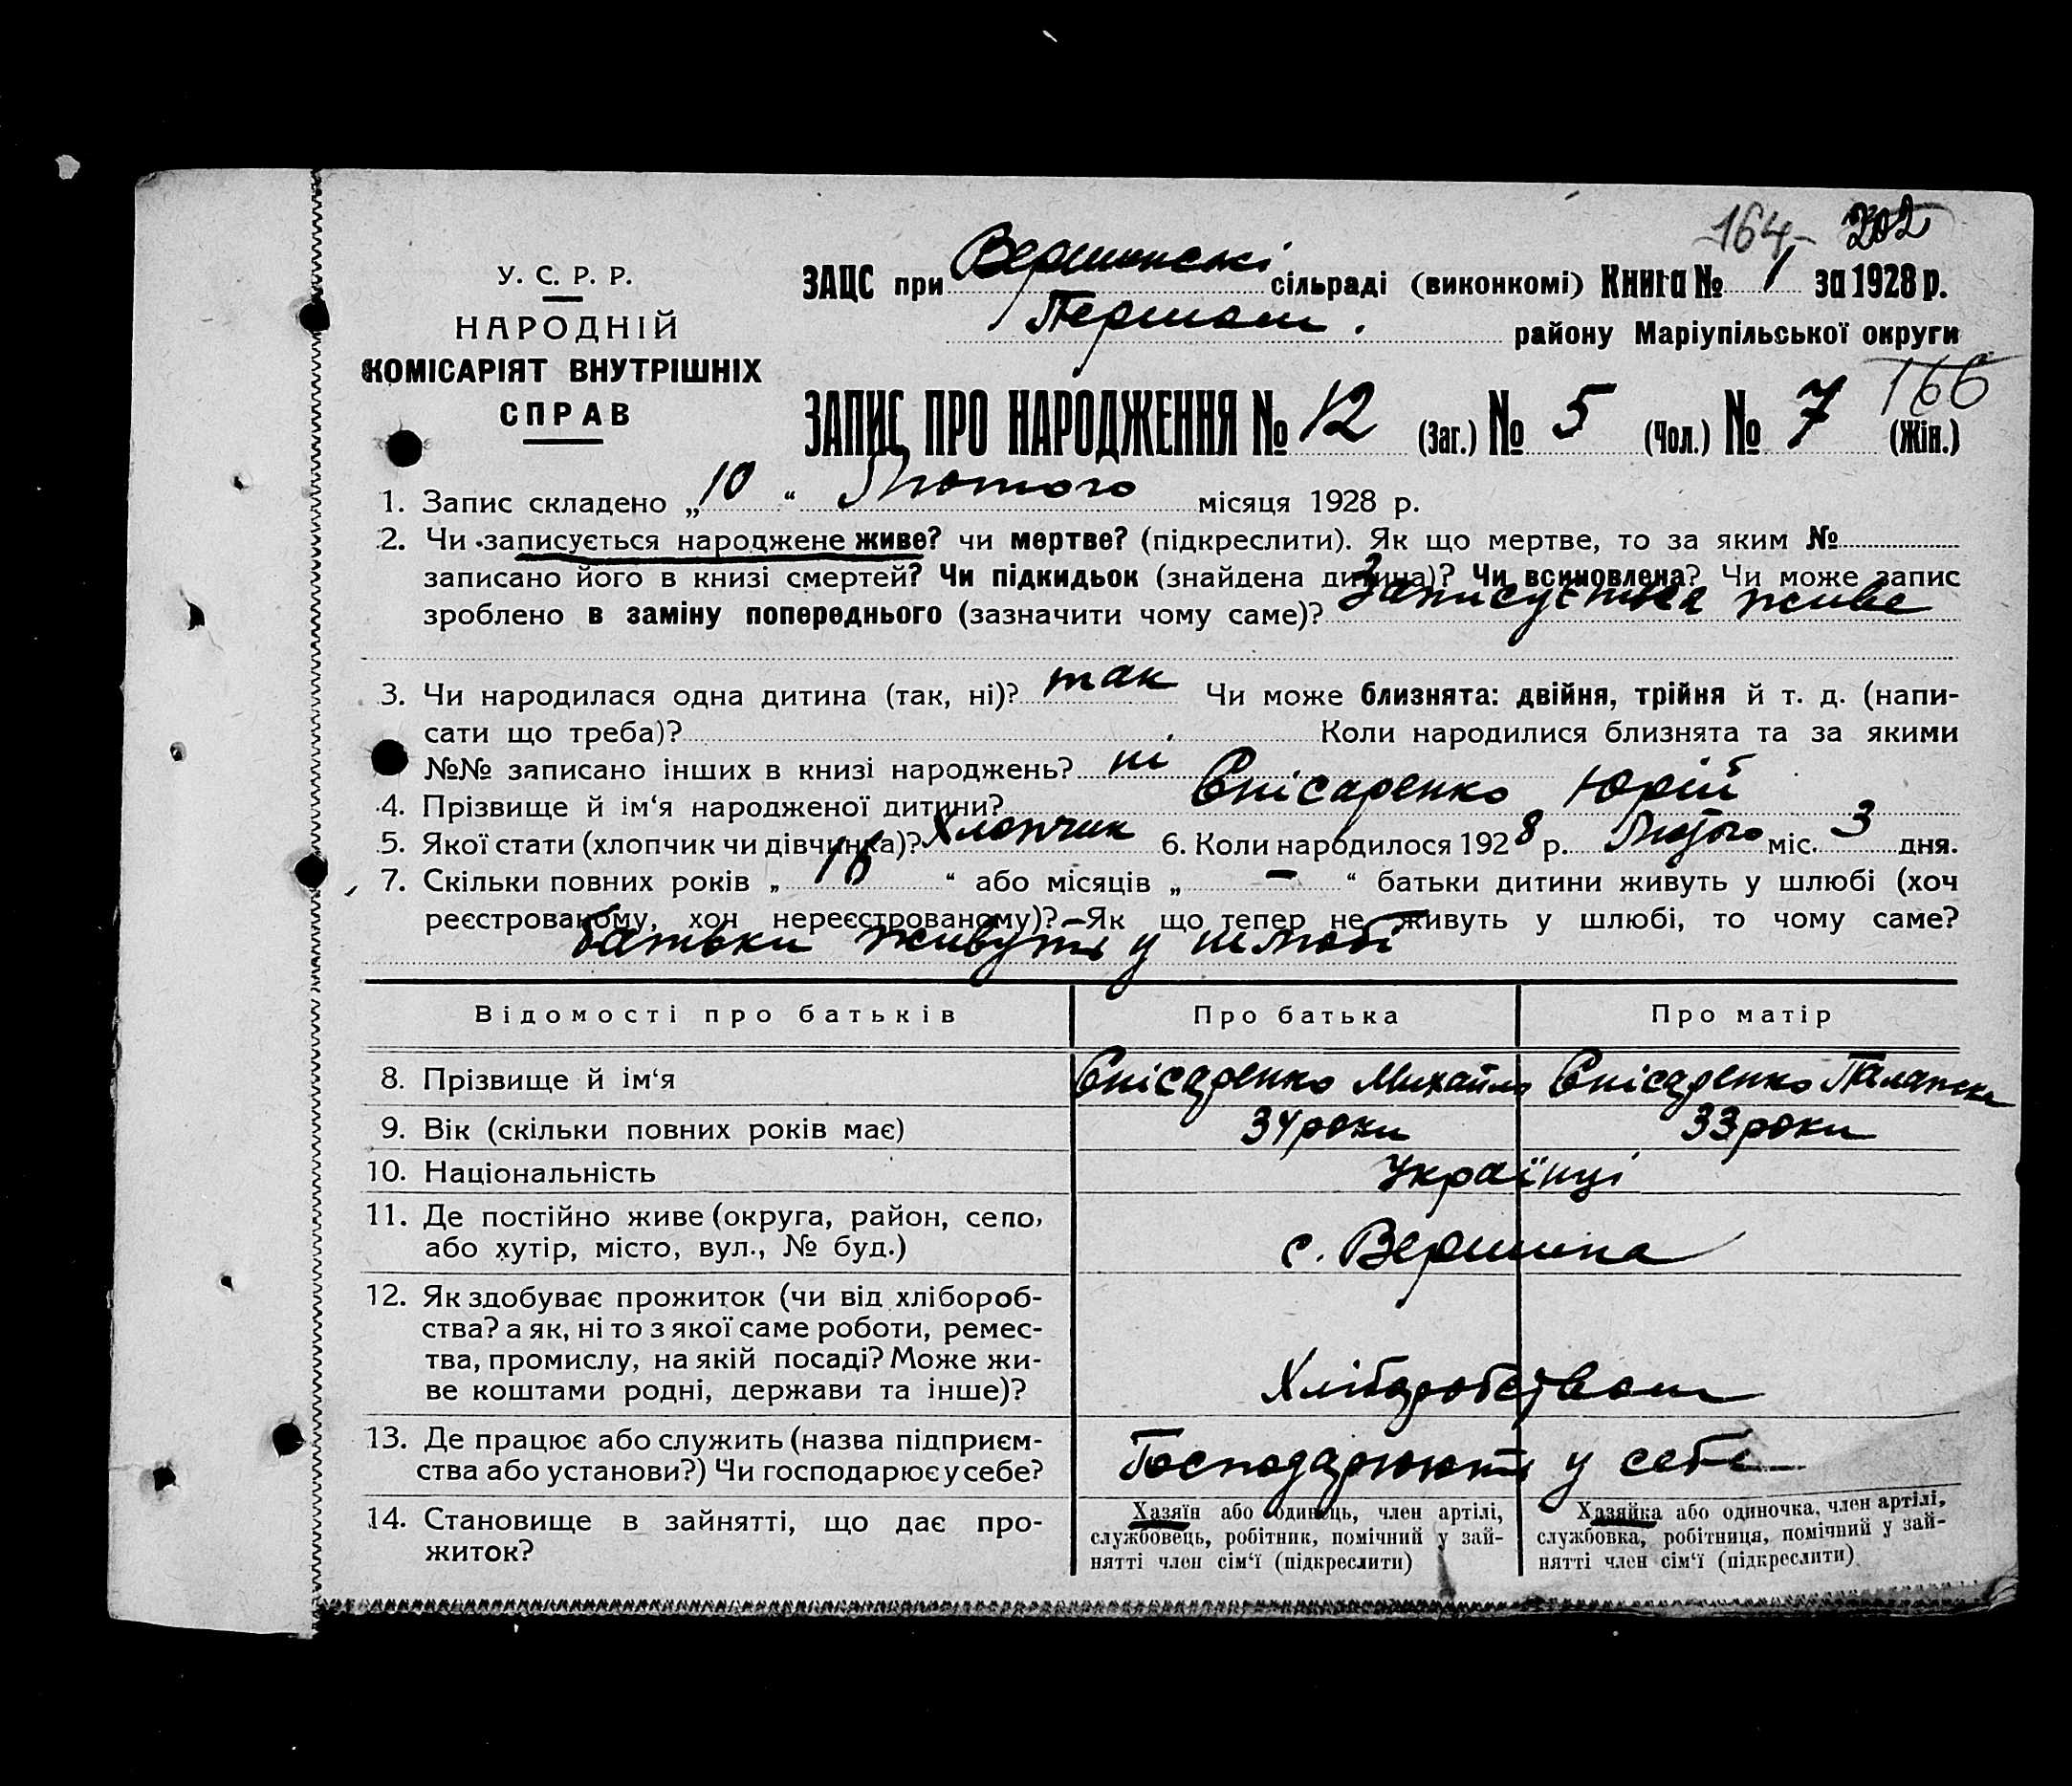 164 202
У. С. Р. Р.
НАРОДНІЙ
КОМІСАРІЯТ ВНУТРІШНІХ
СПРАВ
ЗАЦС при Вершинські сільраді (виконкомі) Книга № 1 за 1928 р.
Першот. району Маріупільської округи
166
ЗАПИС ПРО НАРОДЖЕННЯ № 12 (Заг.) № 5 (Чол.) № 7 (Жін.)
1. Запис складено „ 10 “ Лютого місяця 1928 р.
2. Чи записується народжене живе? чи мертве? (підкреслити). Як що мертве, то за яким №
записано його в книзі смертей? Чи підкидьок (знайдена дитина)? Чи всиновлена? Чи може запис
зроблено в заміну попереднього (зазначити чому саме)? Записується живе
3. Чи народилася одна дитина (так, ні)? так Чи може близнята: двійня, трійня й т. д. (напи-
сати що треба)? Коли народилися близнята та за якими
№№ записано інших в книзі народжень? ні
4. Прізвище й ім‘я народженої дитини? Єпісаренко Юрій
5. Якої стати (хлопчик чи дівчинка)? Хлопчик 6. Коли народилося 1928 р. Лютого міс. 3 дня.
7. Скільки повних років „ 16 “ або місяців „ — “ батьки дитини живуть у шлюбі (хоч
реєстрованому, хоч нереєстрованому)? — Як що тепер не живуть у шлюбі, то чому саме?
батьки живуть у шлюбі
Відомості про батьків Про батька Про матір
8. Прізвище й ім‘я Єпісаренко Михайло Єпісаренко
9. Вік (скільки повних років має) 34 роки 33 роки
10. Національність Українці
11. Де постійно живе (округа, район, село,
або хутір, місто, вул., № буд.) с. Вершина
12. Як здобуває прожиток (чи від хлібороб-
ства? а як, ні то з якої саме роботи, ремес-
тва, промислу, на якій посаді? Може жи-
ве коштами родні, держави та інше)? Хліборобством
13. Де працює або служить (назва підприєм-
ства або установи?) Чи господарює у себе? Господарюють у себе
14. Становище в зайнятті, що дає про-
житок?
Хазяїн або одинець, член артілі,
службовець, робітник, помічний у зай-
нятті член сім‘ї (підкреслити)
Хазяйка або одиночка, член артілі,
службовка, робітниця, помічний у зай-
нятті член сім‘ї (підкреслити)